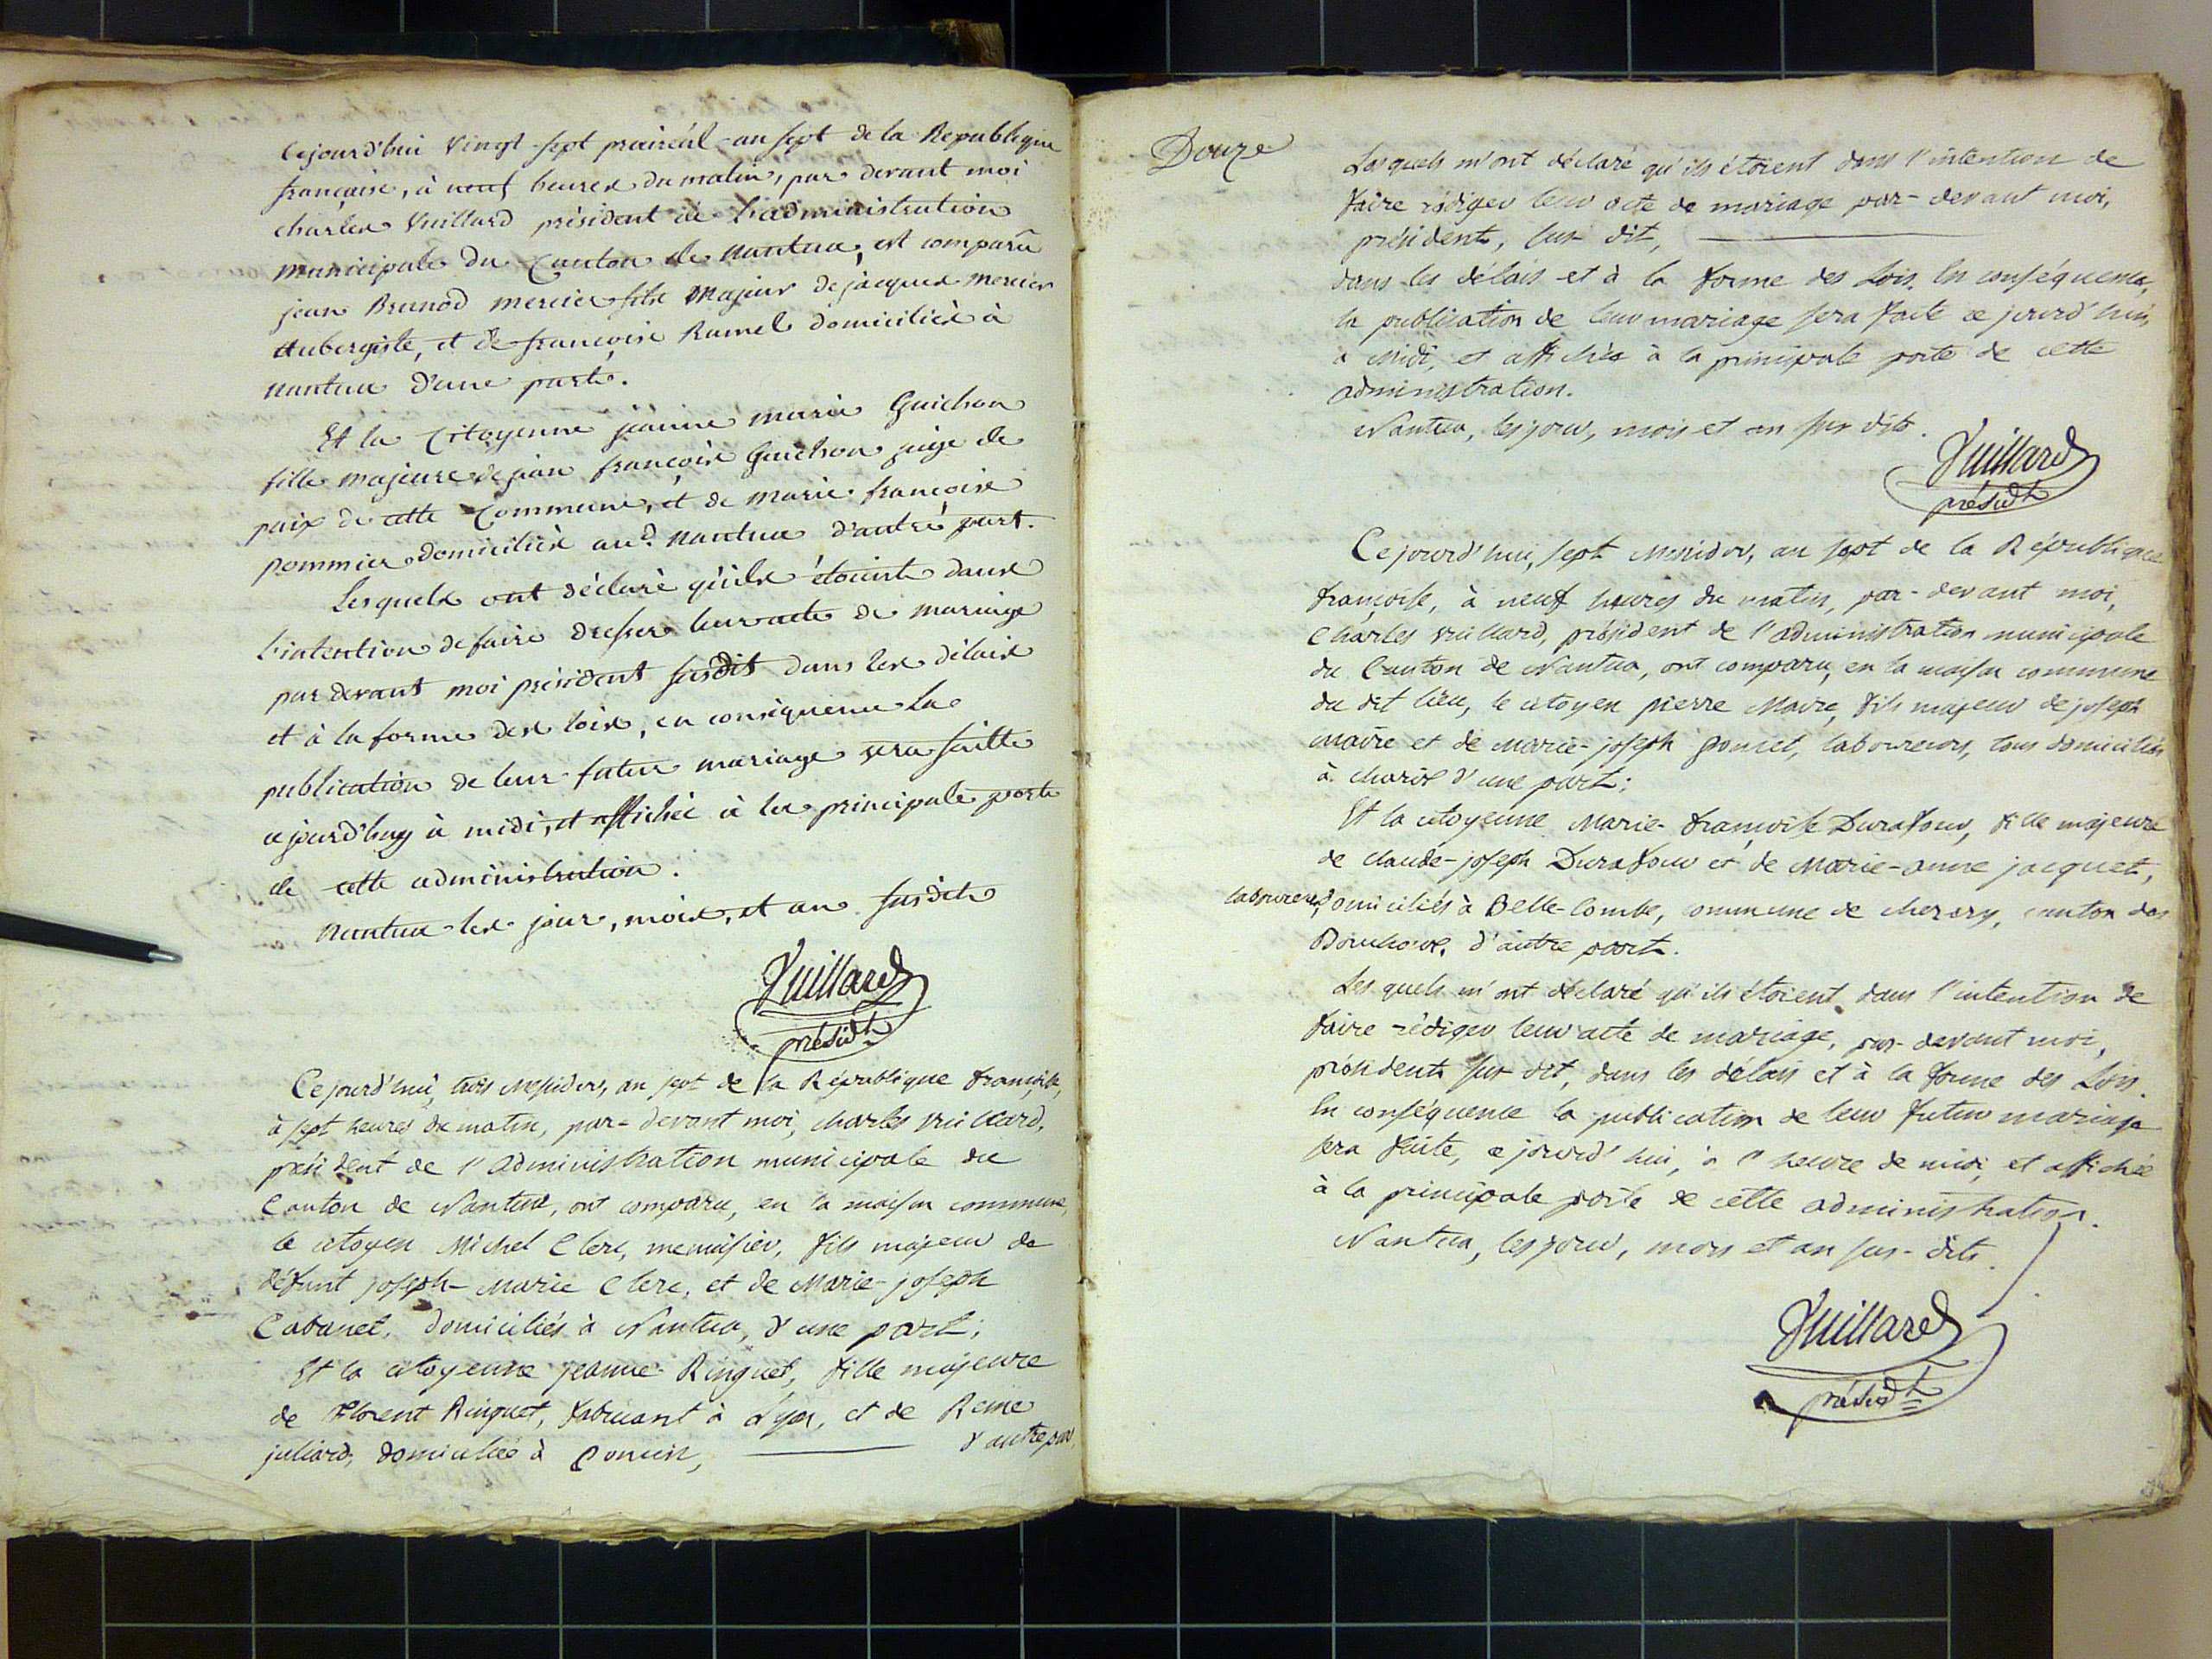 Cejourd'hui Vingt-sept prairéal an sept de la Republique
française, à neuf heures du matin, par devant moi
charles Vuillard président de l'administration
municipale du Canton de nantua, est comparu
jean Brunod mercier fils Majeur de jacques mercier
Aubergiste, et de françoise Ramel domiciliés à
nantua d'une parte.
Et la Citoyenne jeanne marie Guichon
fille majeure de jean françois Guichon juge de
paix de cette Commune, et de marie françoise
pommier domiciliés aud. nantua d'autre part.
Lesquels ont déclaré qu'ils étoient dans
l'intention de faire dresser leur acte de mariage
par devant moi président susdit dans les délais
et à la forme des loix, en conséquence la
publication de leur futur mariage sera faitte
cejourd'huy à midi, et affichée à la principale porte
de cette administration.
Nantua les jour, mois, et an susdits
Vuillard
présidt
Ce jourd'hui, trois Messidor, an sept de la République françoise,
à sept heures du matin, par-devant moi, charles vuillard,
président de l'administration municipale du
Canton de Nantua, ont comparu, en la maison commune,
le citoyen Michel Clerc, menuisier, fils majeur de
défunt joseph-Marie Clerc, et de Marie-joseph
Cabanet, domiciliés à Nantua, d'une part;
Et la citoyenne jeanne Ringuet, fille majeure
de Florent Ringuet, fabricant à Lyon, et de Reine
juliard, domiciliée à Poncin, d'autre part,
Douze
Lesquels m'ont déclaré qu'ils étoient dans l'intention de
faire rédiger leur acte de mariage par-devant moi,
président, sus dit,
dans les délais et à la forme des Lois. En conséquence,
la publication de leur mariage sera faite ce jourd'hui,
à Midi, et affichée à la principale porte de cette
administration.
Nantua, les jour, mois et an sus dits.
Vuillard
présidt
Ce jourd'hui, sept Messidor, an sept de la République
françoise, à neuf heures du matin, par-devant moi,
Charles vuillard, président de l'administration municipale
du Canton de Nantua, ont comparu, en la maison commune
du dit lieu, le citoyen pierre Maire, fils majeur de joseph
maire et de Marie-joseph poncet, laboureurs, tous domiciliés
à charix d'une part;
Et la citoyenne Marie-françoise Durafour, fille majeure
de claude-joseph Durafour et de Marie-anne jacquet,
laboureurs, domiciliés à Belle-Combe, commune de chezery, canton des
Bouchoux, d'autre part.
Les quels m'ont déclaré qu'ils étoient dans l'intention de
faire rédiger leur acte de mariage, par-devant moi,
président sus-dit, dans les délais et à la forme des Lois.
En conséquence la publication de leur futur mariage
sera faite, ce jourd'hui, à l'heure de midi, et affichée
à la principale porte de cette administration.
Nantua, les jour, mois et an sus-dits.
Vuillard
présidt